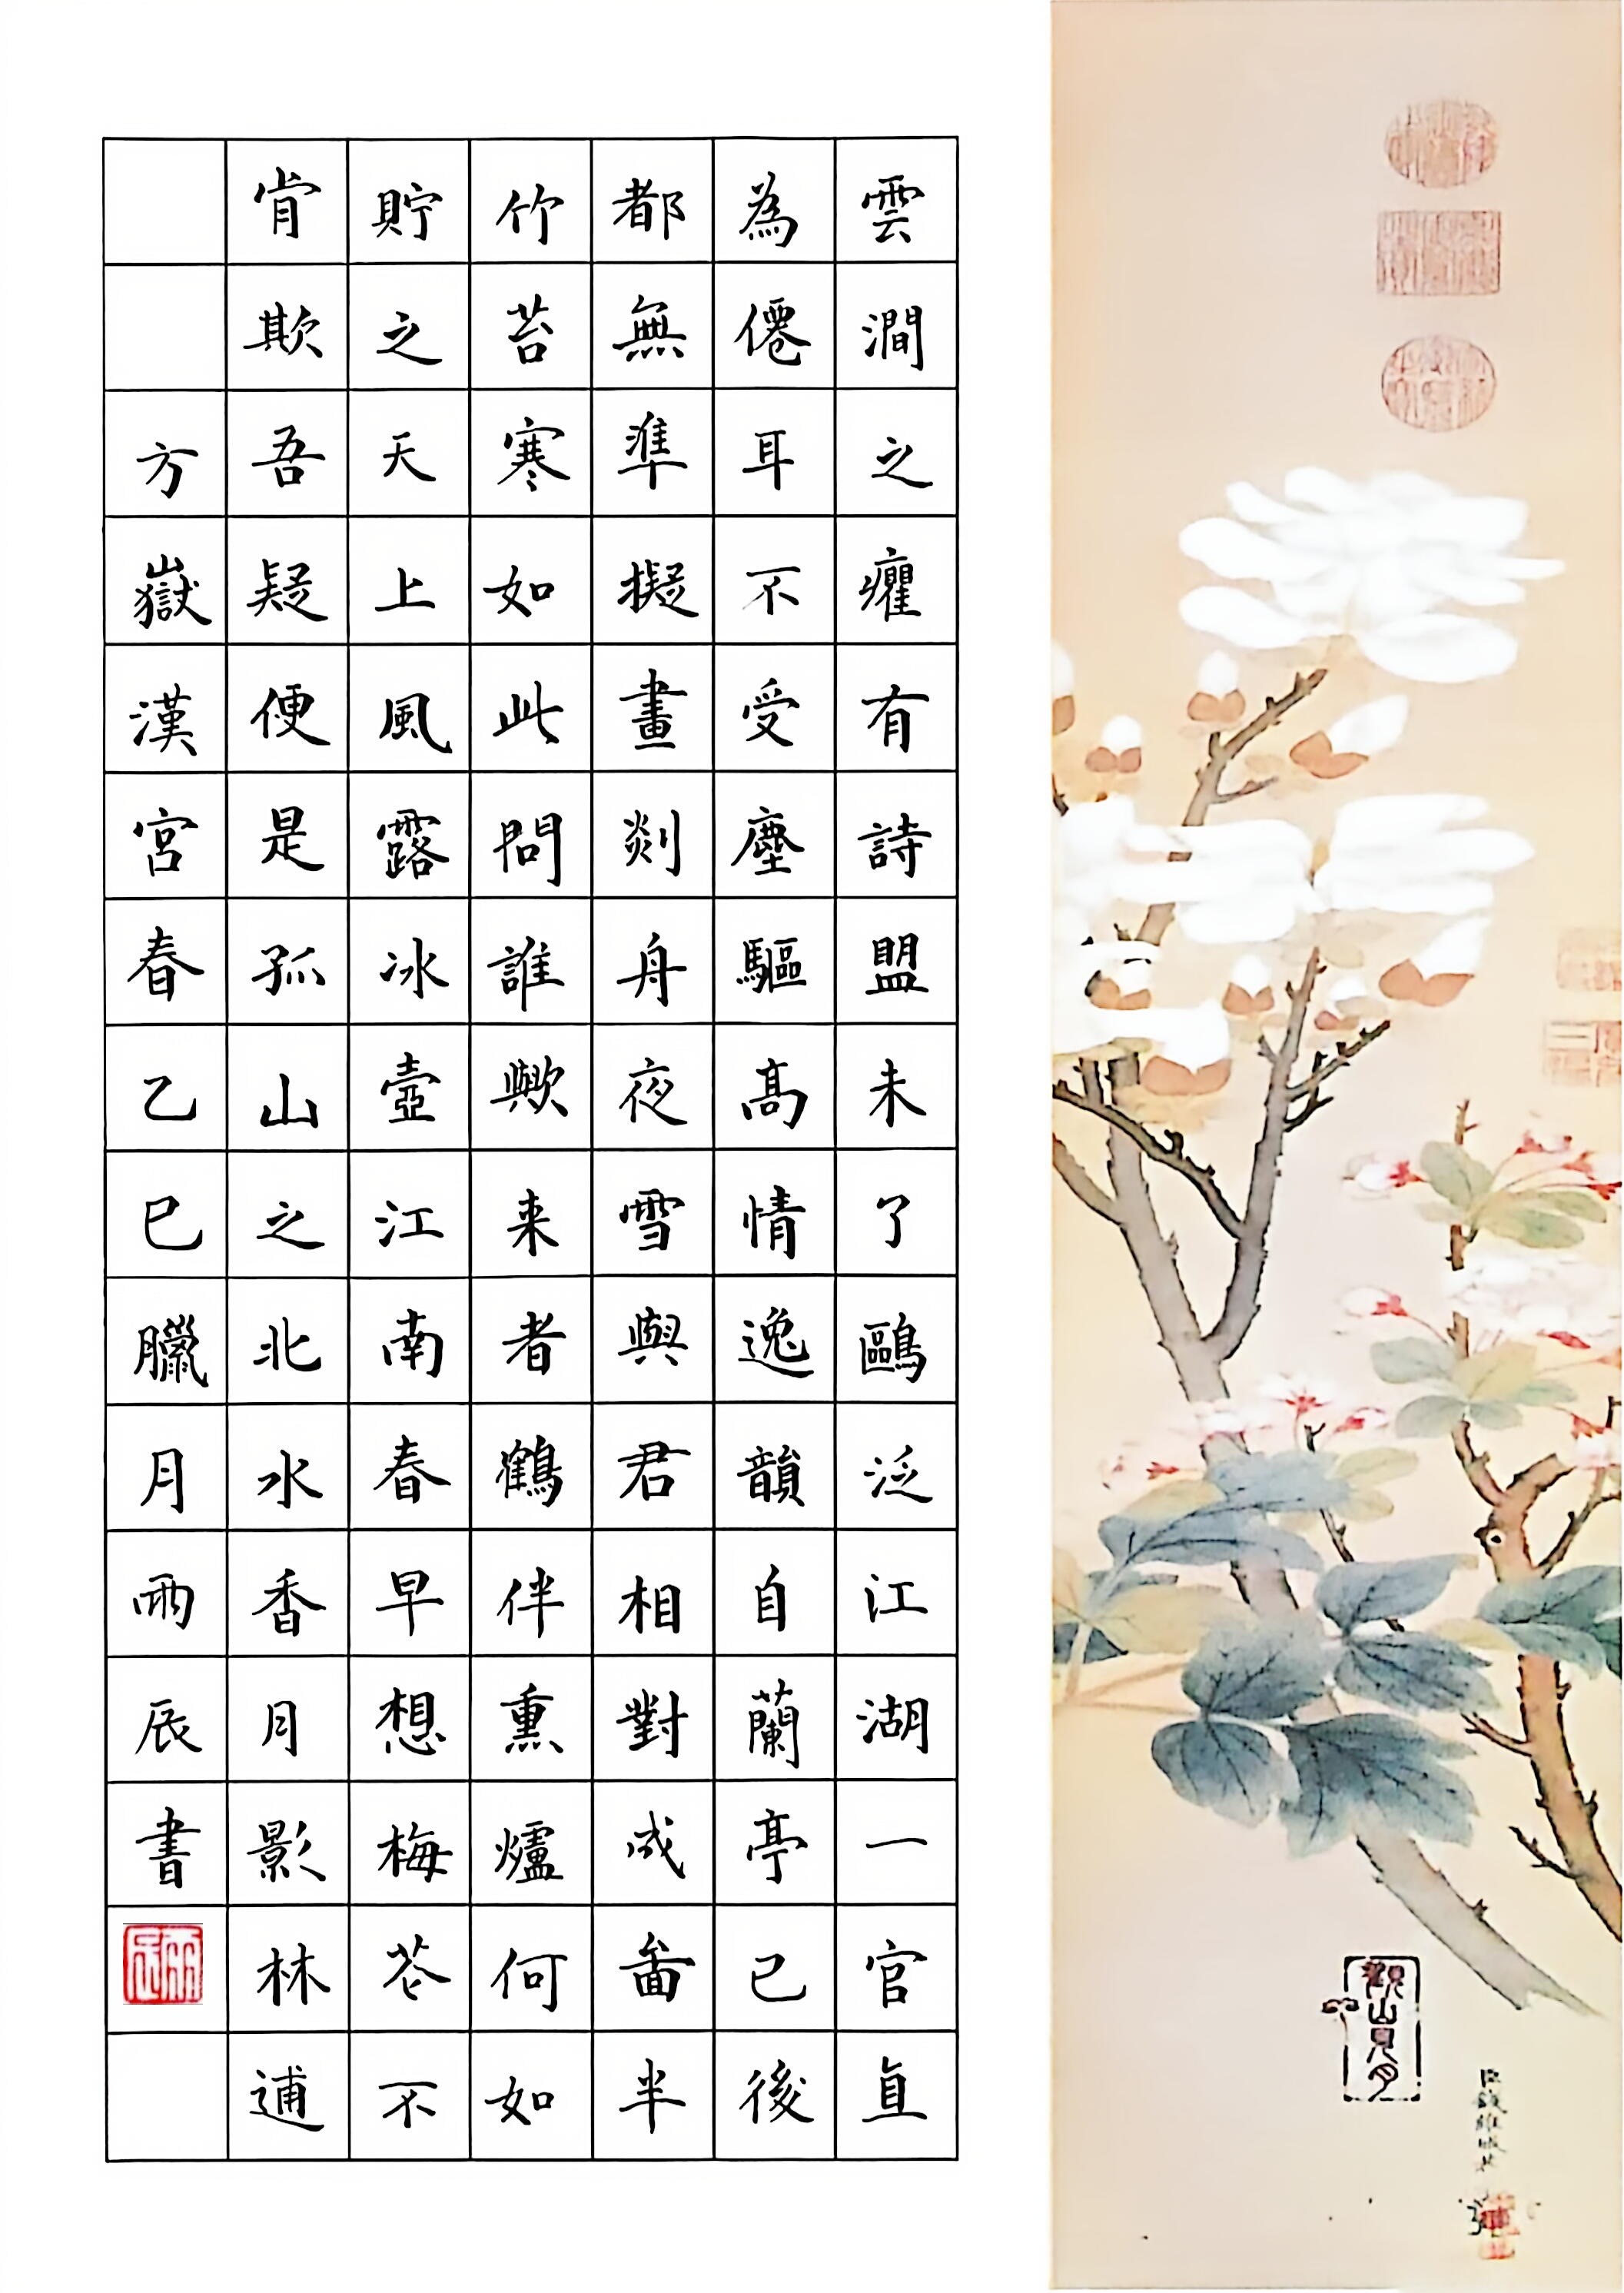 雲澗之癯有詩盟未了鷗泛江湖一官直
為僊耳不受塵驅高情逸韻自蘭亭已後
都無準擬畫剡舟夜雪與君相對成畵半
竹苔寒如此問誰歟来者鶴伴熏爐何如
貯之天上風露冰壺江南春早想梅苍不
肯欺吾疑便是孤山之北水香月影林逋
方嶽漢宮春乙巳臘月雨辰書
雨辰
觀山見月
臣錢維城恭